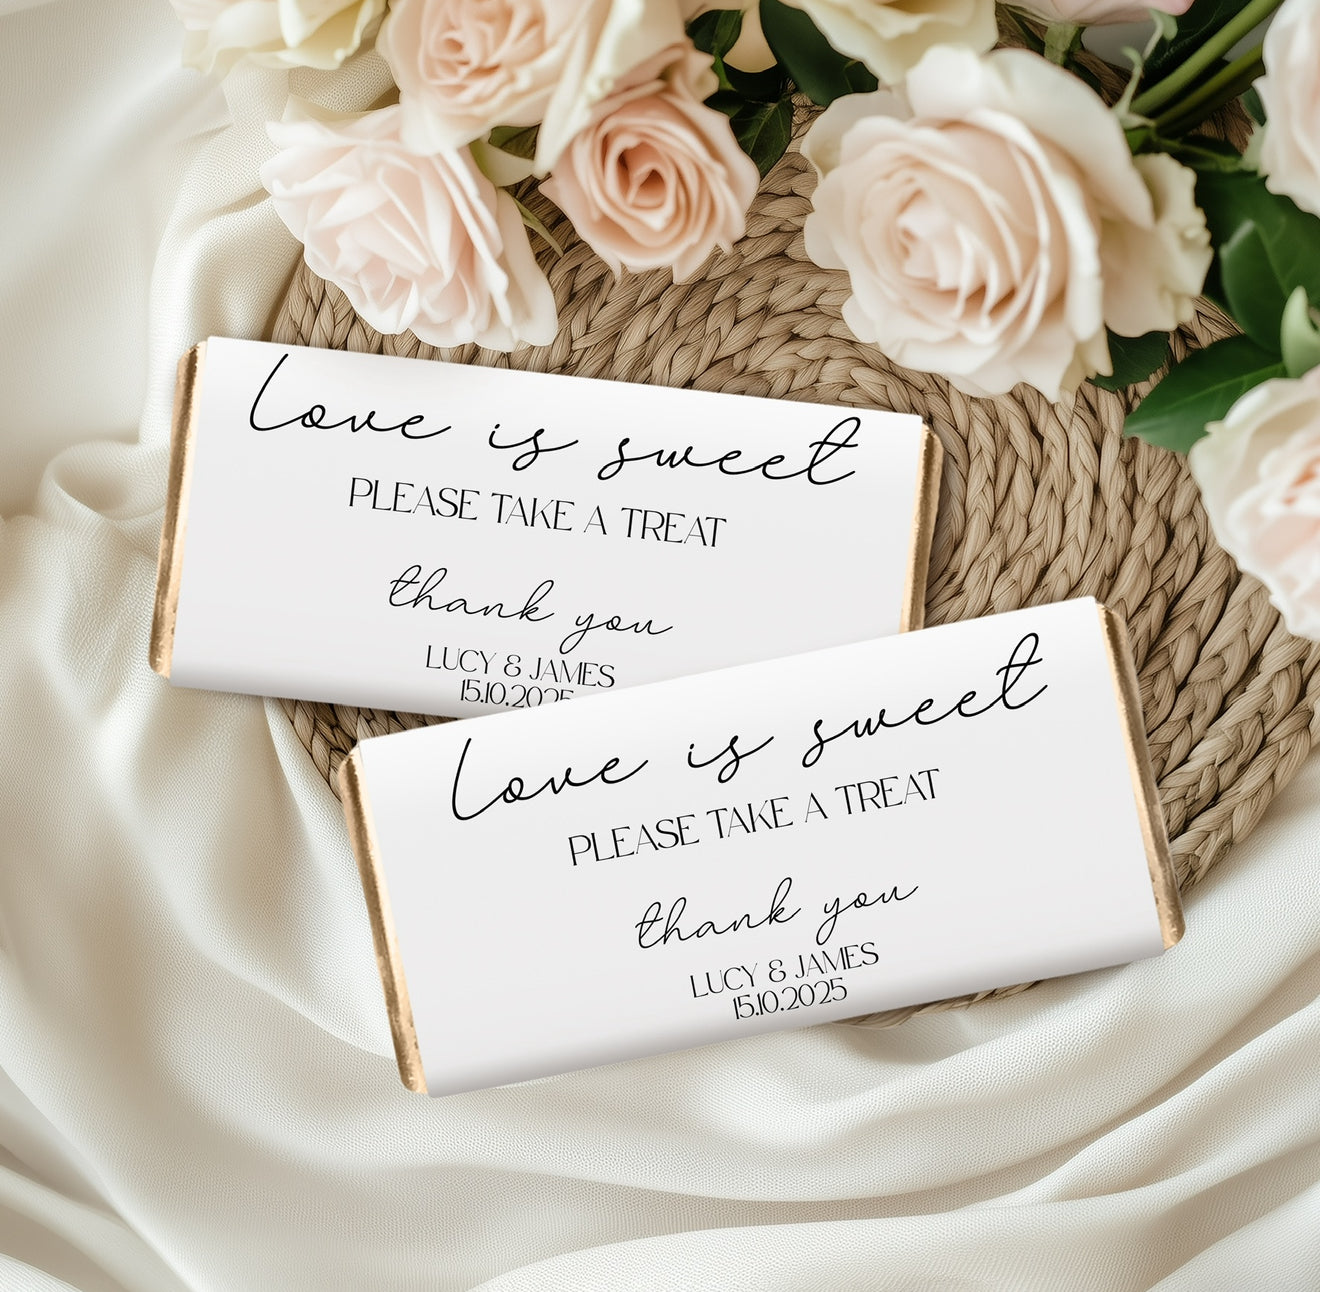 Love is sweet
PLEASE TAKE A TREAT
thank you
LUCY & JAMES
15.10.2025
Love is sweet
PLEASE TAKE A TREAT
thank you
LUCY & JAMES
15.10.2025